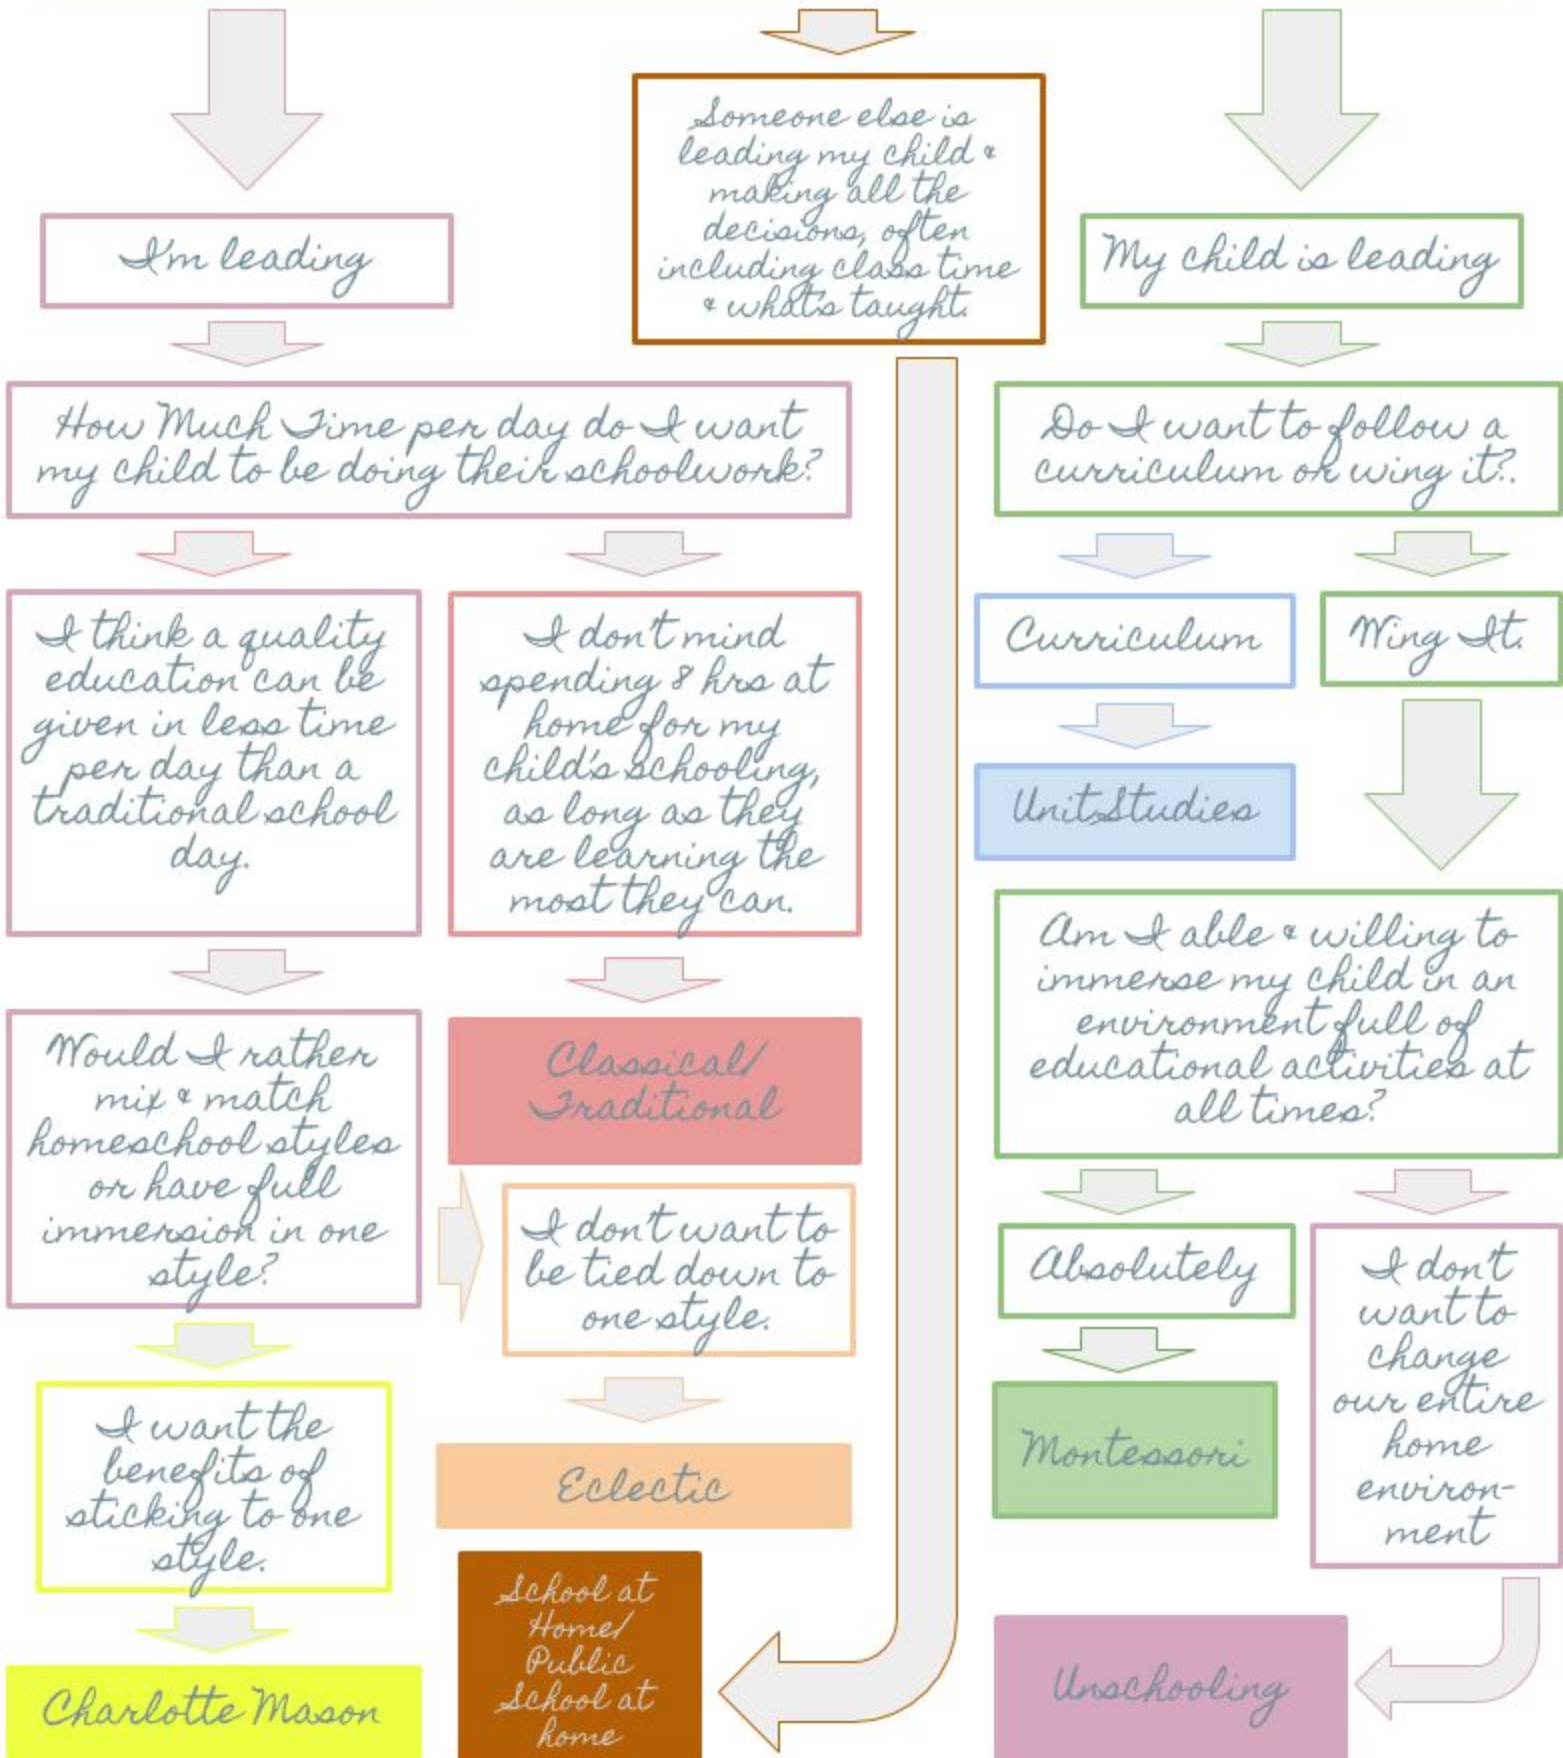 I'm leading
How Much Time per day do I want
my child to be doing their schoolwork?
I think a quality
education can be
given in less time
per day than a
traditional school
day.
I don't mind
spending 8 hrs at
home for my
child's schooling,
as long as they
are learning the
most they can.
Would I rather
mix & match
homeschool styles
or have full
immersion in one
style?
Classical/
Traditional
I don't want to
be tied down to
one style.
Eclectic
I want the
benefits of
sticking to one
style.
Charlotte Mason
Someone else is
leading my child &
making all the
decisions, often
including class time
& what's taught.
School at
Home/
Public
School at
home
My child is leading
Do I want to follow a
curriculum or wing it?.
Curriculum
Wing It.
Unit Studies
Am I able & willing to
immerse my child in an
environment full of
educational activities at
all times?
Absolutely
Montessori
I don't
want to
change
our entire
home
environ-
ment
Unschooling